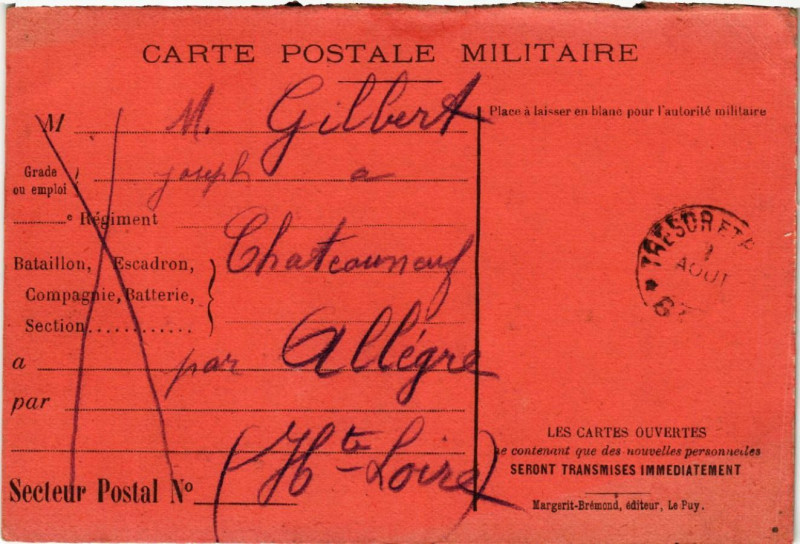 CARTE POSTALE MILITAIRE
M M. Gilbert
Place à laisser en blanc pour l'autorité militaire
Grade
ou emploi
joseph a
e Régiment
Bataillon, Escadron,
Compagnie, Batterie,
Section
Chateauneuf
a par Allégre
par
(Hte-Loire)
Secteur Postal No
TRESOR ET P
AOUT
LES CARTES OUVERTES
ne contenant que des nouvelles personnelles
SERONT TRANSMISES IMMEDIATEMENT
Margerit-Brémond, éditeur, Le Puy.